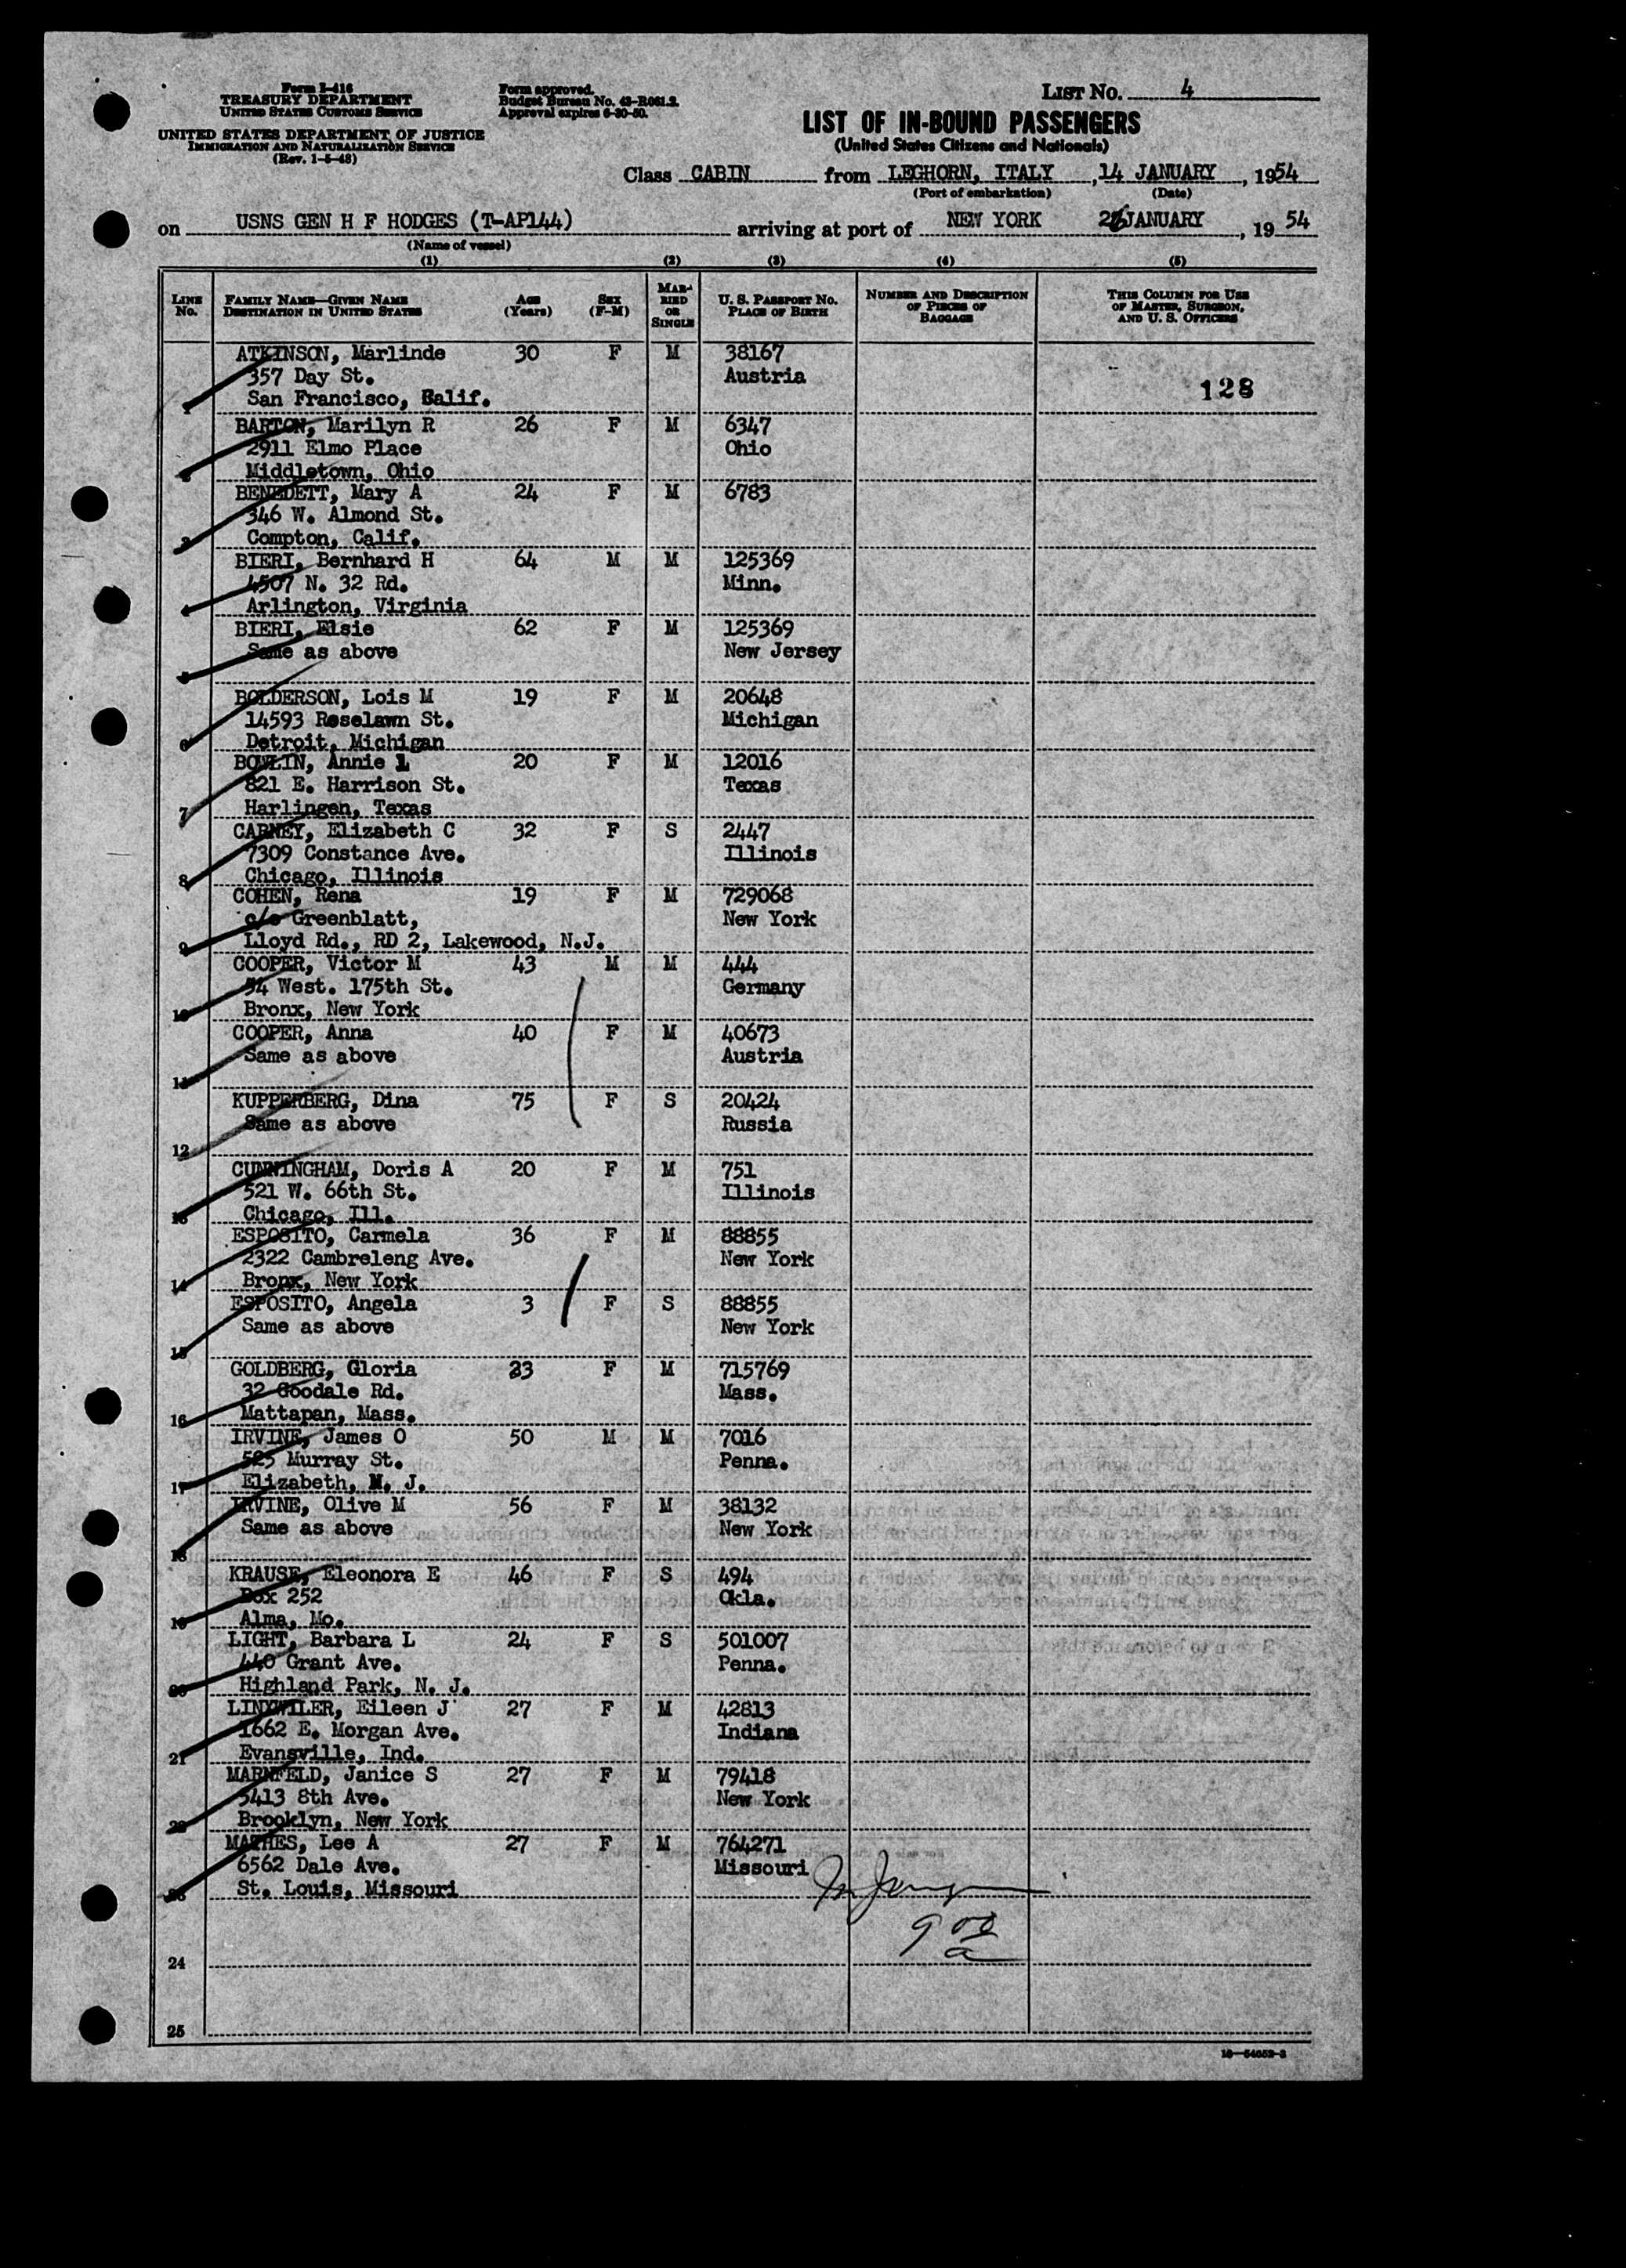 Form I-416
TREASURY DEPARTMENT
UNITED STATES CUSTOMS SERVICE
UNITED STATES DEPARTMENT OF JUSTICE
IMMIGRATION AND NATURALIZATION SERVICE
(Rev. 1-5-48)
Form approved.
Budget Bureau No. 43-R061.2.
Approval expires 6-30-50.
LIST No. 4
LIST OF IN-BOUND PASSENGERS
(United States Citizens and Nationals)
Class CABIN from LEGHORN, ITALY , 14 JANUARY , 1954
(Port of embarkation) (Date)
on USNS GEN H F HODGES (T-AP144) arriving at port of NEW YORK JANUARY , 19 54
(Name of vessel)
(1) (2) (3) (4) (5)
LINE No. FAMILY NAME—GIVEN NAME DESTINATION IN UNITED STATES AGE (Years) SEX (F-M) MARRIED OR SINGLE U. S. PASSPORT No. PLACE OF BIRTH NUMBER AND DESCRIPTION OF PIECES OF BAGGAGE THIS COLUMN FOR USE OF MASTER, SURGEON, AND U. S. OFFICERS
ATKINSON, Marlinde 30 F M 38167
357 Day St. Austria
128
1 San Francisco, Calif.
BARTON, Marilyn R 26 F M 6347
2911 Elmo Place Ohio
2 Middletown, Ohio
BENEDETT, Mary A 24 F M 6783
346 W. Almond St.
3 Compton, Calif.
BIERI, Bernhard H 64 M M 125369
4507 N. 32 Rd. Minn.
4 Arlington, Virginia
BIERI, Elsie 62 F M 125369
Same as above New Jersey
5
BOLDERSON, Lois M 19 F M 20648
14593 Roselawn St. Michigan
6 Detroit, Michigan
BOWLIN, Annie L 20 F M 12016
821 E. Harrison St. Texas
7 Harlingen, Texas
CARNEY, Elizabeth C 32 F S 2447
7309 Constance Ave. Illinois
8 Chicago, Illinois
COHEN, Rena 19 F M 729068
c/o Greenblatt, New York
9 Lloyd Rd., RD 2, Lakewood, N.J.
COOPER, Victor M 43 M M 444
54 West. 175th St. Germany
10 Bronx, New York
COOPER, Anna 40 F M 40673
Same as above Austria
11
KUPPERBERG, Dina 75 F S 20424
Same as above Russia
12
CUNNINGHAM, Doris A 20 F M 751
521 W. 66th St. Illinois
13 Chicago, Ill.
ESPOSITO, Carmela 36 F M 88855
2322 Cambreleng Ave. New York
14 Bronx, New York
ESPOSITO, Angela 3 F S 88855
Same as above New York
15
GOLDBERG, Gloria 23 F M 715769
32 Goodale Rd. Mass.
16 Mattapan, Mass.
IRVINE, James O 50 M M 7016
525 Murray St. Penna.
17 Elizabeth, N. J.
IRVINE, Olive M 56 F M 38132
Same as above New York
18
KRAUSE, Eleonora E 46 F S 494
Box 252 Okla.
19 Alma, Mo.
LIGHT, Barbara L 24 F S 501007
440 Grant Ave. Penna.
20 Highland Park, N. J.
LINXWILER, Eileen J 27 F M 42813
1662 E. Morgan Ave. Indiana
21 Evansville, Ind.
MARNFELD, Janice S 27 F M 79418
5413 8th Ave. New York
22 Brooklyn, New York
MATHES, Lee A 27 F M 764271
6562 Dale Ave. Missouri
23 St. Louis, Missouri
24
25
16—54652-3